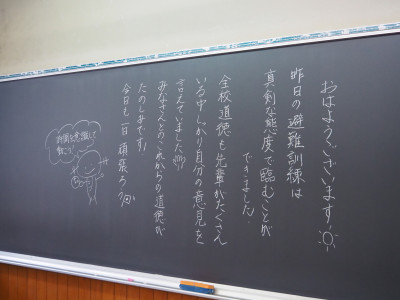 おはようございます
昨日の避難訓練は
真剣な態度で臨むことが
できました。
全校道徳も先輩がたくさん
いる中しっかり自分の意見を
言えていました
みなさんとのこれからの道徳が
たのしみです!
今日も一日頑張ろう
時間を意識して
動こう!